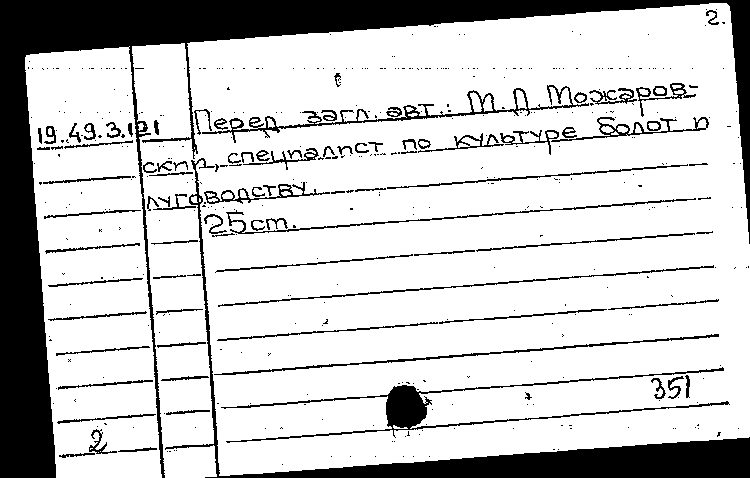 2.
19.49.3.121 Перед загл. авт.: М. Д. Можаров-
ский, специалист по культуре болот и
луговодству.
25 cm.
351
2